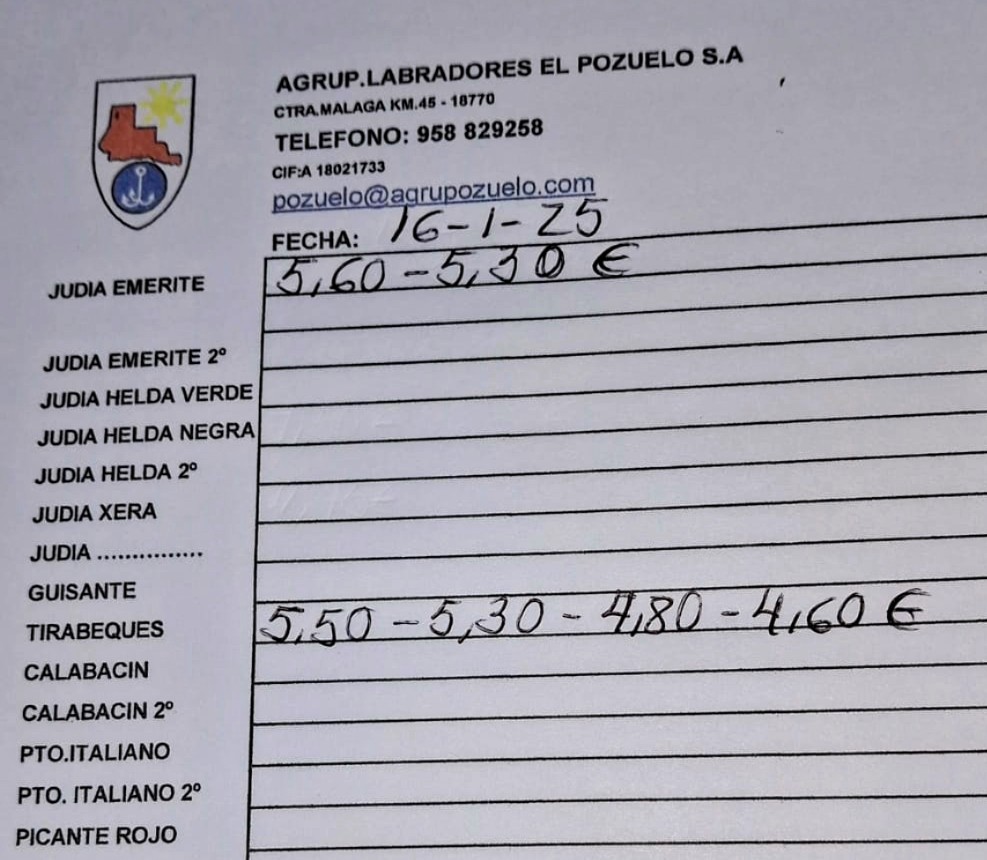 AGRUP.LABRADORES EL POZUELO S.A
CTRA.MALAGA KM.45 - 18770
TELEFONO: 958 829258
CIF:A 18021733
pozuelo@agrupozuelo.com
FECHA: 16-1-25
JUDIA EMERITE 5,60-5,30 €
JUDIA EMERITE 2º
JUDIA HELDA VERDE
JUDIA HELDA NEGRA
JUDIA HELDA 2º
JUDIA XERA
JUDIA ...............
GUISANTE
TIRABEQUES 5,50-5,30-4,80-4,60 €
CALABACIN
CALABACIN 2º
PTO.ITALIANO
PTO. ITALIANO 2º
PICANTE ROJO